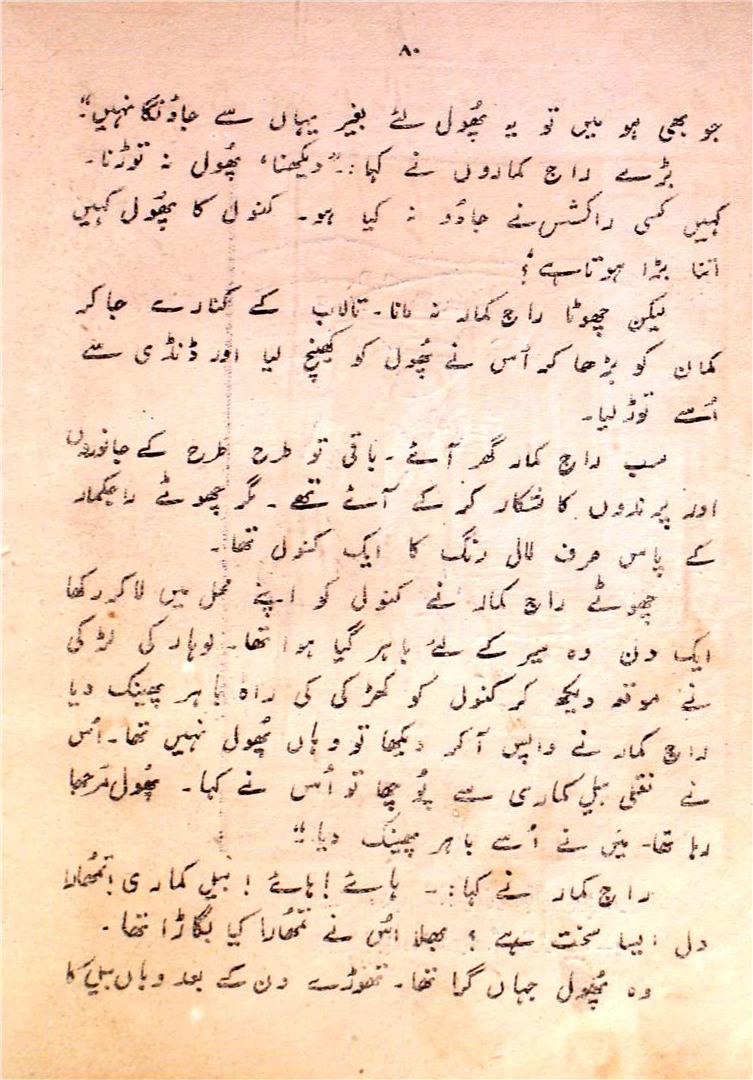 ۸۰
جو بھی ہو میں تو یہ پھُول لئے بغیر یہاں سے جاؤنگا نہیں“۔
بڑے راج کماروں نے کہا:۔”دیکھنا، پھُول نہ توڑنا۔
کہیں کسی راکشس نے جادُو نہ کیا ہو۔ کنول کا پھُول کہیں
اتنا بڑا ہوتا ہے؟
لیکن چھوٹا راج کمار نہ مانا۔ تالاب کے کنارے جا کر
کمان کو بڑھا کر اُس نے پھُول کو کھینچ لیا اور ڈنڈی سے
اُسے توڑ لیا۔
سب راج کمار گھر آئے۔ باقی تو طرح طرح کے جانوروں
اور پرندوں کا شکار کر کے آئے تھے۔ مگر چھوٹے راجکمار
کے پاس صرف لال رنگ کا ایک کنول تھا۔
چھوٹے راج کمار نے کنول کو اپنے محل میں لا کر رکھا
ایک دن وہ سیر کے لئے باہر گیا ہوا تھا۔ لوہار کی لڑکی
نے موقعہ دیکھ کر کنول کو کھڑکی کی راہ باہر پھینک دیا
راج کمار نے واپس آ کر دیکھا تو وہاں پھُول نہیں تھا۔ اُس
نے نقلی بیل کماری سے پُوچھا تو اُس نے کہا۔ پھُول مُرجھا
رہا تھا۔ میَں نے اُسے باہر پھینک دیا۔“
راج کمار نے کہا:۔ ہائے! ہائے! بیل کماری! تمھُارا
دل ایسا سخت ہے؟ بھلا اُس نے تمھُارا کیا بگاڑا تھا۔
وہ پھُول جہاں گرا تھا۔ تھوڑے دن کے بعد وہاں بیل کا